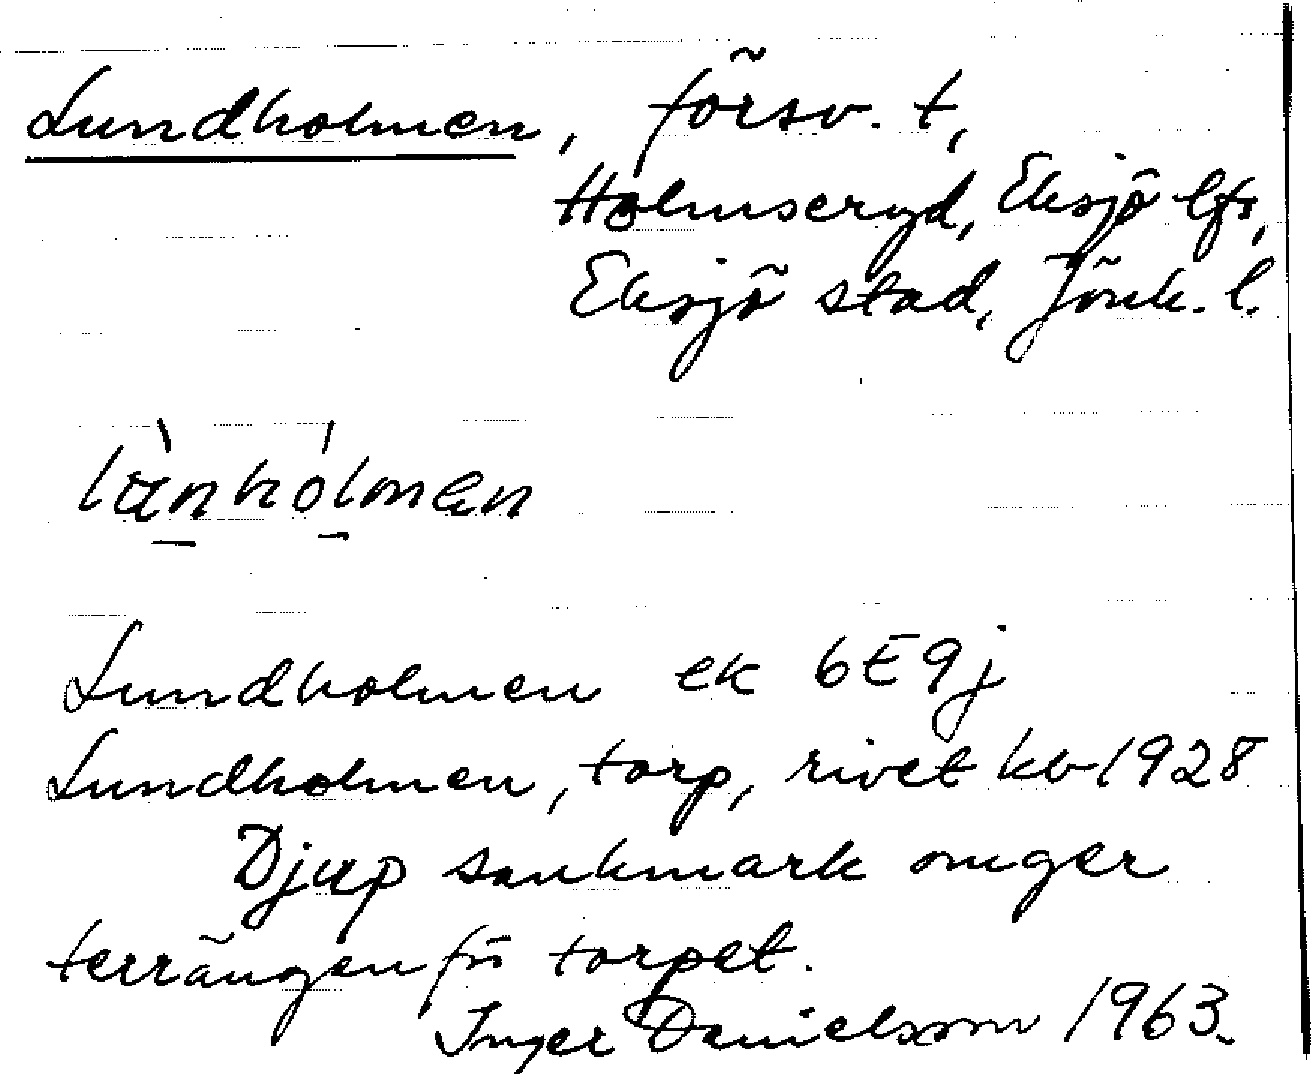 Lundholmen, försv. t,
Holmseryd, Eksjö lfs,
Eksjö stad, Jönk. l.
Lundholmen ek 6E9j
Lundholmen, torp, rivet kb 1928
Djup sankmark omger
terrängen för torpet.
Inger Danielsson 1963.